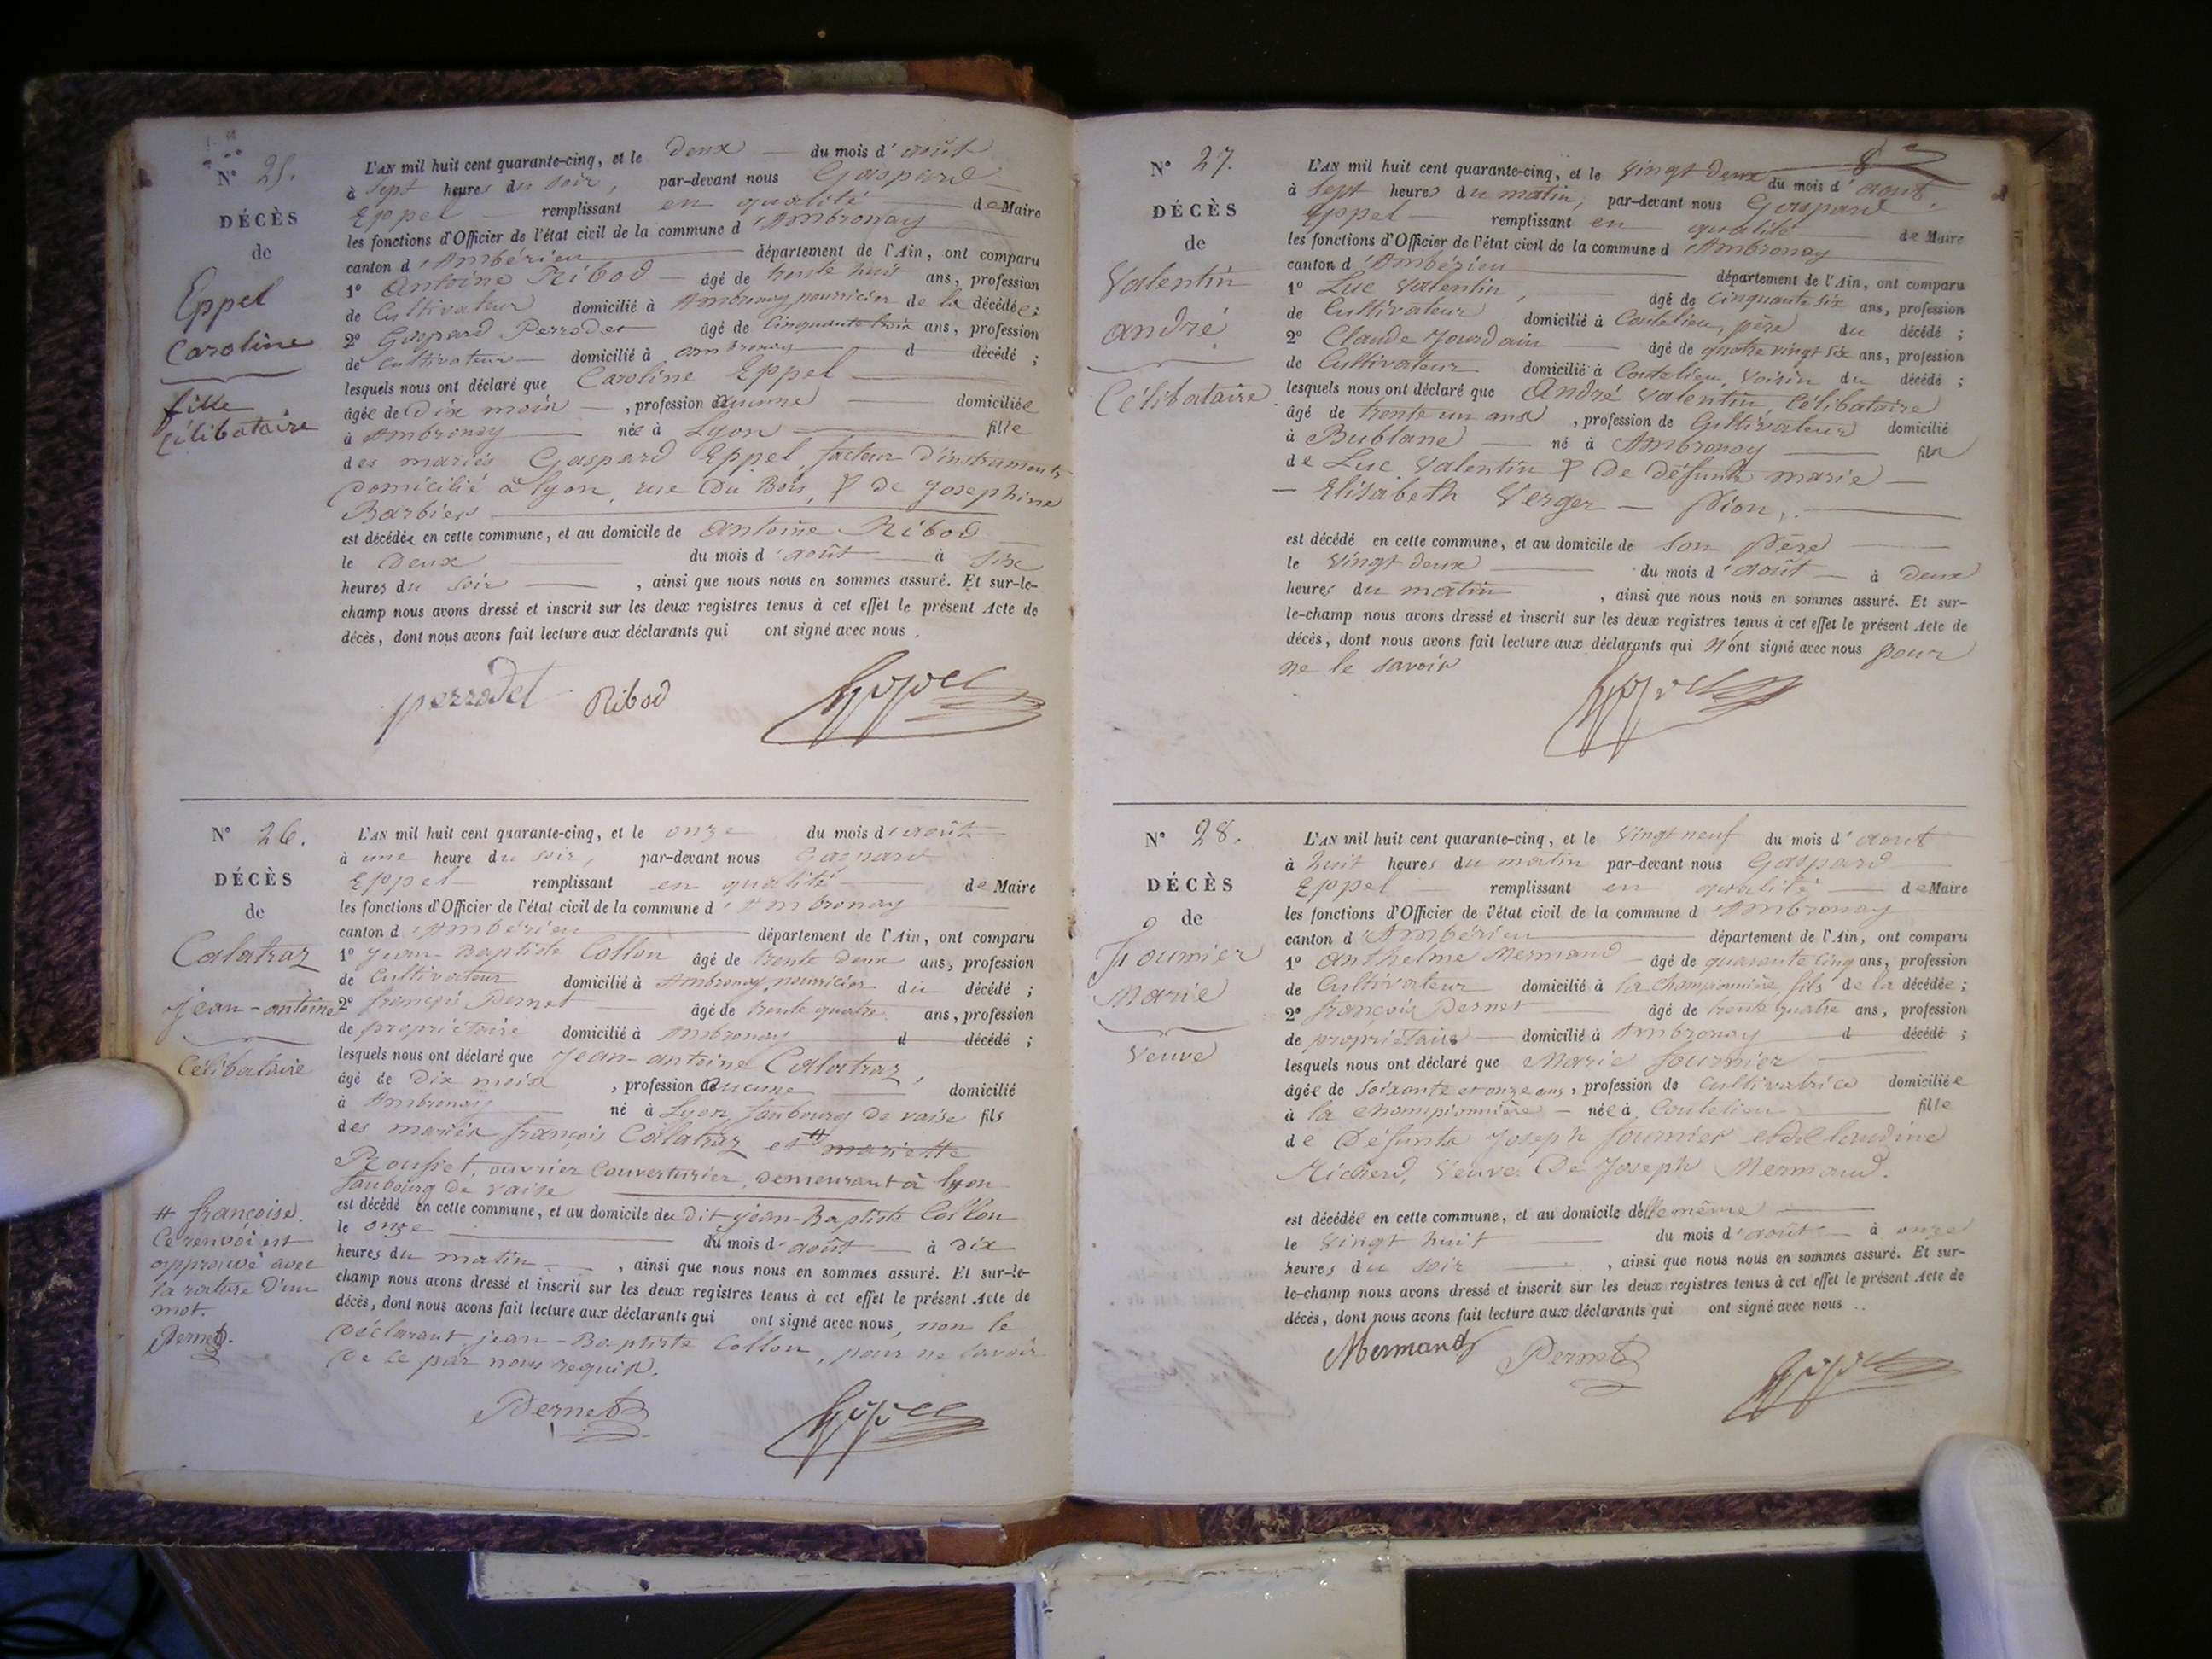 N° 25.
DÉCÈS
de
Eppel
Caroline
fille
célibataire
L'AN mil huit cent quarante-cinq, et le deux du mois d'août
à sept heures du soir, par-devant nous Gaspard
Eppel remplissant en qualité de Maire
les fonctions d'Officier de l'état civil de la commune d'Ambronay
canton d'Ambérieu département de l'Ain, ont comparu
1° Antoine Ribod âgé de trente huit ans, profession
de Cultivateur domicilié à Ambronay, nourricier de la décédée;
2° Gaspard Perrodet âgé de Cinquante trois ans, profession
de Cultivateur domicilié à ambronay d décédé ;
lesquels nous ont déclaré que Caroline Eppel
âgée de dix mois , profession aucune domiciliée
à Ambronay née à Lyon fille
des mariés Gaspard Eppel, facteur d'instruments
domicilié à lyon, rue Du Bois, & de Josephine
Barbier
est décédée en cette commune, et au domicile de Antoine Ribod
le Deux du mois d'août à six
heures du soir , ainsi que nous nous en sommes assuré. Et sur-le-
champ nous avons dressé et inscrit sur les deux registres tenus à cet effet le présent Acte de
décès, dont nous avons fait lecture aux déclarants qui ont signé avec nous.
perrodet Ribod Eppel
N° 26.
DÉCÈS
de
Calatraz
jean-antoine
Célibataire
L'AN mil huit cent quarante-cinq, et le onze du mois d'août
à une heure du soir, par-devant nous Gaspard
Eppel remplissant en qualité de Maire
les fonctions d'Officier de l'état civil de la commune d'Ambronay
canton d'Ambérieu département de l'Ain, ont comparu
1° Jean-Baptiste Collon âgé de trente deux ans, profession
de Cultivateur domicilié à Ambronay, nourricier du décédé ;
2° françois Pernet âgé de trente quatre ans, profession
de propriétaire domicilié à Ambronay d décédé ;
lesquels nous ont déclaré que Jean-antoine Calatraz,
âgé de Dix mois , profession aucune domicilié
à Ambronay né à Lyon, faubourg de vaise fils
des mariés françois Calatraz et # mariette
Rousset, ouvrier Couverturier, demeurant à lyon
faubourg de vaise
est décédé en cette commune, et au domicile du dit jean-Baptiste Collon
le onze du mois d'août à dix
heures du matin , ainsi que nous nous en sommes assuré. Et sur-le-
champ nous avons dressé et inscrit sur les deux registres tenus à cet effet le présent Acte de
décès, dont nous avons fait lecture aux déclarants qui ont signé avec nous, non le
Déclarant jean-Baptiste Collon, pour ne savoir
De ce par nous requis.
# françoise.
Ce renvoi est
approuvé avec
la rature d'un
mot.
Pernet.
Pernet Eppel
N° 27.
DÉCÈS
de
Valentin
andré
Célibataire
8
L'AN mil huit cent quarante-cinq, et le vingt deux du mois d'aout.
à sept heures du matin, par-devant nous Gaspard
Eppel remplissant en qualité de Maire
les fonctions d'Officier de l'état civil de la commune d'Ambronay
canton d'Ambérieu département de l'Ain, ont comparu
1° Luc Valentin, âgé de cinquante six ans, profession
de Cultivateur domicilié à Coutelieu, père du décédé ;
2° Claude Jourdain âgé de quatre vingt six ans, profession
de Cultivateur domicilié à Coutelieu, voisin du décédé ;
lesquels nous ont déclaré que André Valentin, Célibataire
âgé de trente un ans , profession de Cultivateur domicilié
à Bublane né à Ambronay fils
de Luc Valentin & De défunte marie
Elisabeth Verger - Pion,
est décédé en cette commune, et au domicile de son Père
le Vingt deux du mois d'août à Deux
heures du matin , ainsi que nous nous en sommes assuré. Et sur-
le-champ nous avons dressé et inscrit sur les deux registres tenus à cet effet le présent Acte de
décès, dont nous avons fait lecture aux déclarants qui n'ont signé avec nous pour
ne le savoir
Eppel
N° 28.
DÉCÈS
de
Fournier
Marie
Veuve
L'AN mil huit cent quarante-cinq, et le Vingt neuf du mois d'aout
à huit heures du matin par-devant nous Gaspard
Eppel remplissant en qualité de Maire
les fonctions d'Officier de l'état civil de la commune d'Ambronay
canton d'Ambérieu département de l'Ain, ont comparu
1° Anthelme Mermand âgé de quarante Cinq ans, profession
de Cultivateur domicilié à la Championnière, fils de la décédée;
2° françois Pernet âgé de trente quatre ans, profession
de propriétaire domicilié à Ambronay d décédé ;
lesquels nous ont déclaré que Marie fournier
âgée de soixante et onze ans, profession de cultivatrice domiciliée
à la Championnière née à Coutelieu fille
de Défunts Joseph fournier et de Claudine
Richerd, Veuve De Joseph Mermand.
est décédée en cette commune, et au domicile d'elle même
le Vingt huit du mois d'août à onze
heures du soir , ainsi que nous nous en sommes assuré. Et sur-
le-champ nous avons dressé et inscrit sur les deux registres tenus à cet effet le présent Acte de
décès, dont nous avons fait lecture aux déclarants qui ont signé avec nous ..
Mermand Pernet Eppel